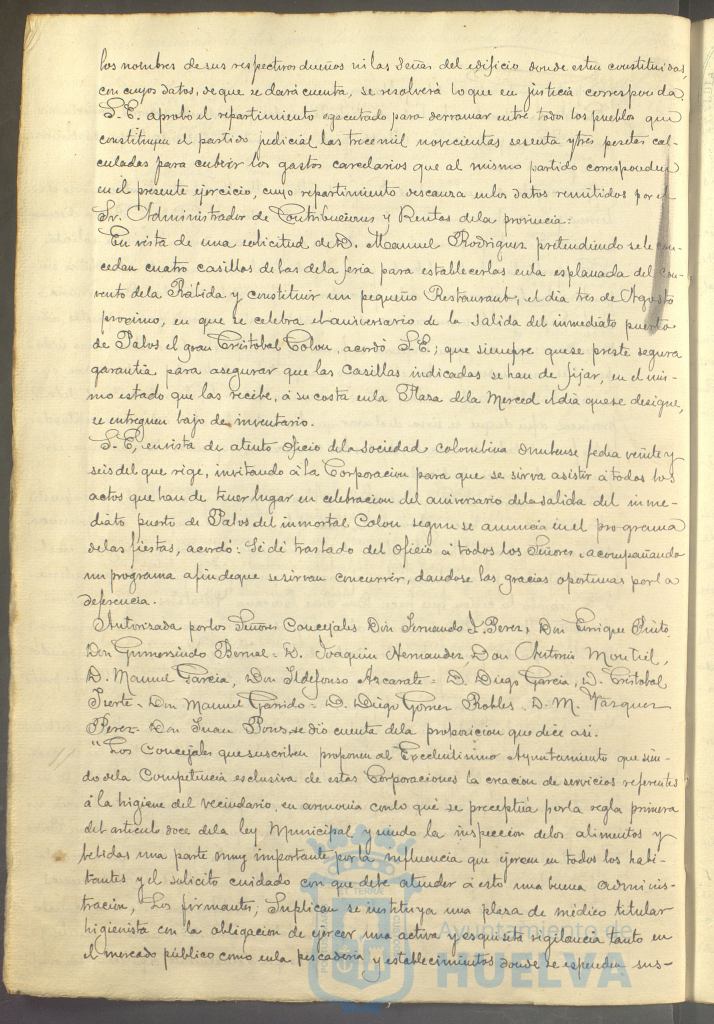 los nombres de sus respectivos dueños ni las señas del edificio donde esten constituidas,
con cuyos datos, de que se dará cuenta, se resolverá lo que en justicia corresponda.
S. E. aprobó el repartimiento egecutado para derramar entre todos los pueblos que
constituyen el partido judicial las trece mil novecientas sesenta y tres pesetas cal-
culadas para cubrir los gastos carcelarios que al mismo partido corresponden
en el presente ejercicio, cuyo repartimiento descansa en los datos remitidos por el
Sr. Administrador de Contribuciones y Rentas de la provincia:
En vista de una solicitud de D. Manuel Rodriguez pretendiendo se le con-
cedan cuatro casillas de las de la feria para establecerlas en la esplanada del con-
vento de la Rábida y constituir un pequeño Restaurant, el dia tres de Agosto
proximo, en que se celebra el aniversario de la salida del inmediato puerto
de Palos el gran Cristobal Colon, acordó S. E.; que siempre que se preste segura
garantia para asegurar que las casillas indicadas se han de fijar, en el mis-
mo estado que las recibe, á su costa en la Plaza de la Merced el dia que se designe,
se entreguen bajo de inventario.
S. E, en vista de atento oficio de la sociedad colombina onubense fecha veinte y
seis del que rige, invitando á la Corporacion para que se sirva asistir á todos los
actos que han de tener lugar en celebracion del aniversario de la salida del inme-
diato puerto de Palos del inmortal Colon segun se anuncia en el programa
de las fiestas, acordó: Se dé traslado del oficio á todos los Señores, acompañando
un programa afin de que se sirvan concurrir, dandose las gracias oportunas por la
deferencia.
Autorizada por los Señores Concejales Don Fernando J. Perez, Don Enrique Pinto,
Don Gumersindo Bernal = D. Joaquin Hernandez Don Antonio Montiel,
D. Manuel Garcia, Don Ildefonso Azcarate = D. Diego Garcia, D. Cristobal
Don Manuel Garrido = D. Diego Gomez Robles, D. M. Vazquez
Perez = Don Juan Pons, se dió cuenta de la proposicion que dice asi.
"Los Concejales que suscriben proponen al Excelentisimo Ayuntamiento que sien-
do de la Competencia exclusiva de estas Corporaciones la creacion de servicios referentes
á la higiene del vecindario, en armonia con lo que se preceptúa por la regla primera
del articulo doce de la ley Municipal y siendo la inspeccion de los alimentos y
bebidas una parte muy importante por la influencia que ejercen en todos los habi-
tantes y el solicito cuidado con que debe atender á esto una buena adminis-
tracion, Los firmantes, Suplican se instituya una plaza de médico titular
higienista con la obligacion de ejercer una activa y esquisita vigilancia tanto en
el mercado público como en la pescaderia y establecimientos donde se espenden sus-
Ayuntamiento de
HUELVA